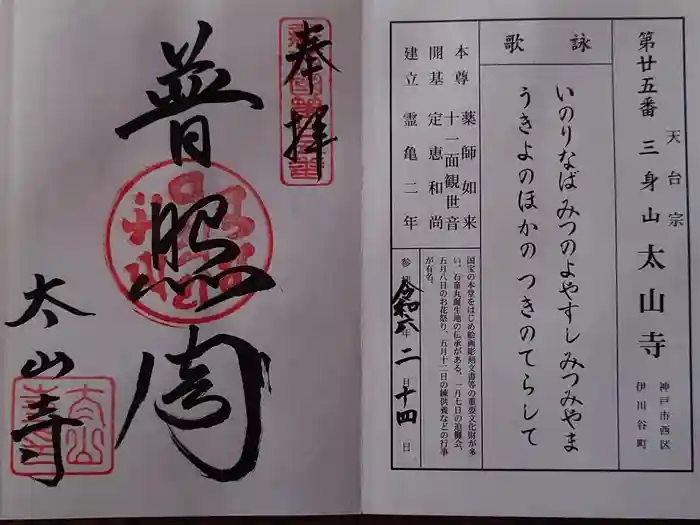 第廿五番
天台宗
三身山 太山寺
神戸市西区
伊川谷町
詠歌
いのりなば みつのよやすし みつみやま
うきよのほかの つきのてらして
本尊 薬師如来
十一面観世音
開基 定恵和尚
建立 霊亀二年
国宝の本堂をはじめ絵画彫刻文書等の重要文化財が多
い。石童丸誕生地の伝承がある。一月七日の追儺会、
五月八日のお花祭り、五月十二日の練供養などの行事
が有名。
令和六年 二月十四日
奉拝
普照周
太山寺